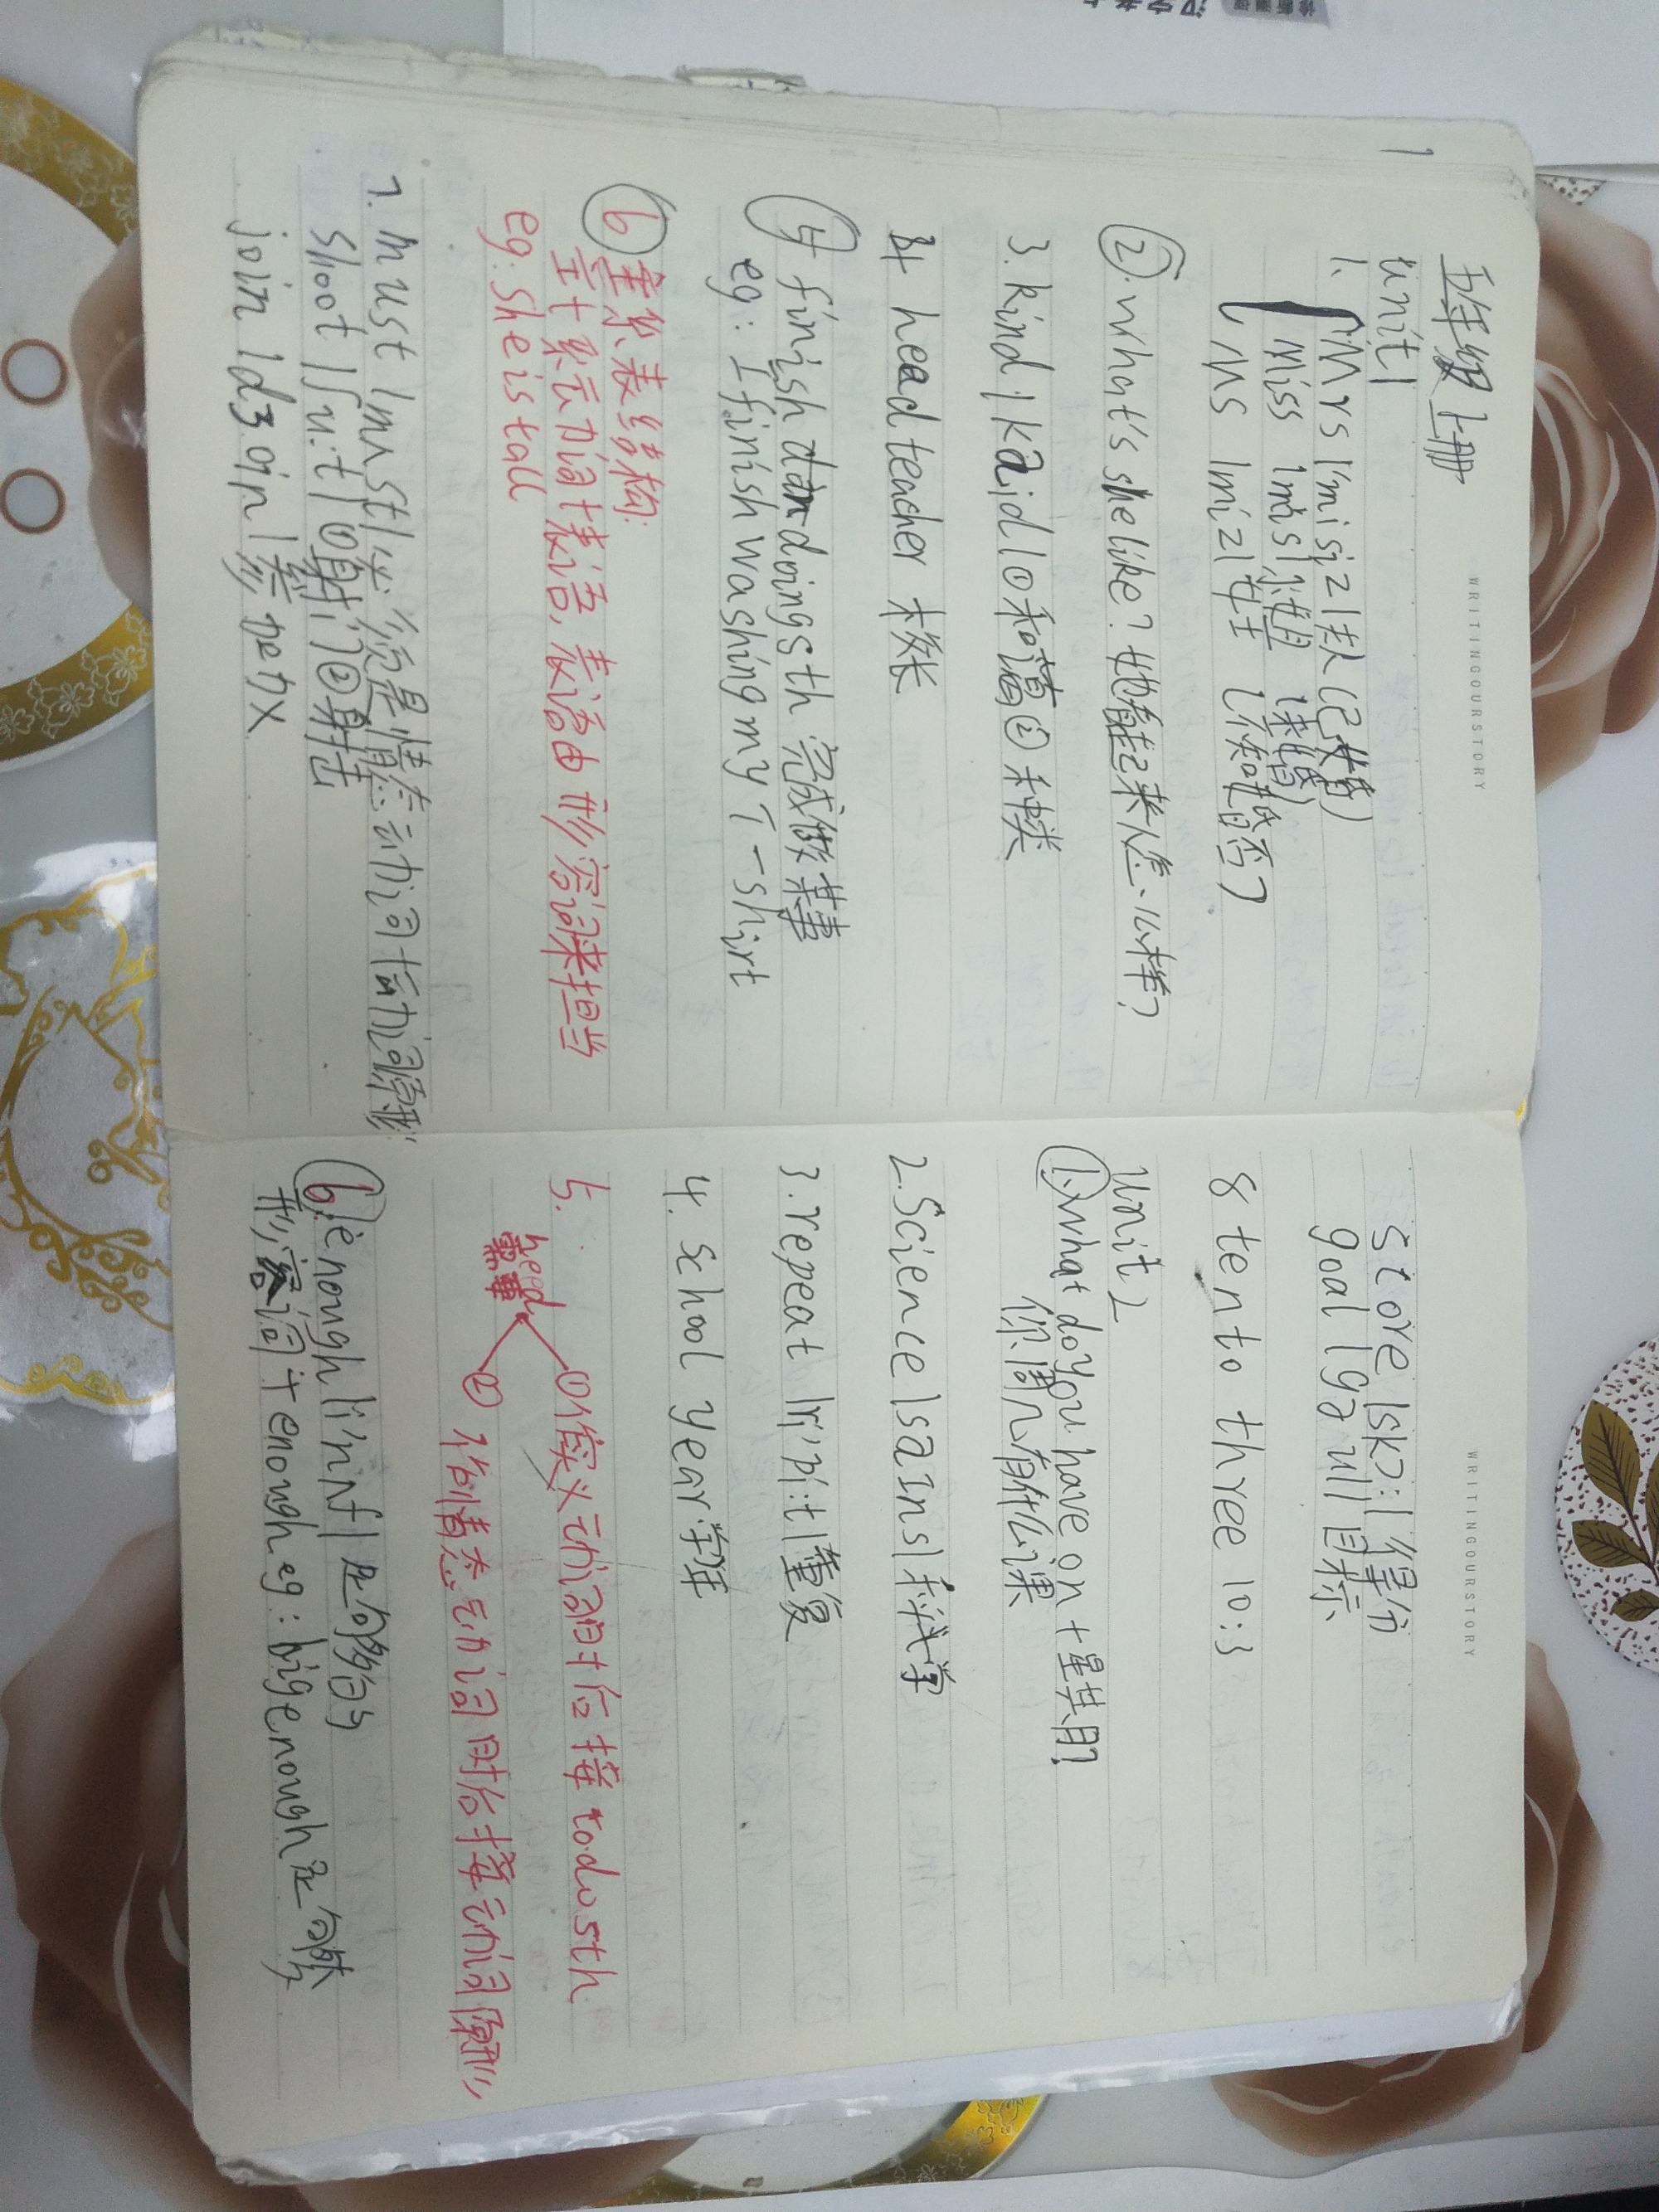 WRITINGOURSTORY
五年级上册
unit1
1. Mrs |'misiz| 夫人(已婚)
Miss |mis| 小姐 (未婚)
Ms |miz| 女士 (不知婚否)
②.What's she like? 她看起来怎么样?
3. kind |kaid| ①和蔼②种类
4 head teacher 校长
5 finish doing sth 完成做某事
eg: I finish washing my T-shirt
6 主系表结构:
主+系动词+表语,表语由形容词来担当
eg: She is tall
7. must |mʌst| 必须是情态动词+后动词原形
shoot |ʃu:t| ①射门②射击
join |dʒɔin| 参加
WRITINGOURSTORY
score |skɔ:| 得分
goal |gəul| 目标
8 ten to three 10:3
unit 2
①.What do you have on+星期?
你周几有什么课
2.Science |saIns| 科学
3.repeat |ri'pi:t| 重复
4. school year 学年
5.
need
需要
①作实义动词时后接 to do sth
②作情态动词时后接动词原形
6.enough |i'nʌf| 足够的
形容词+enough eg: big enough 足够大